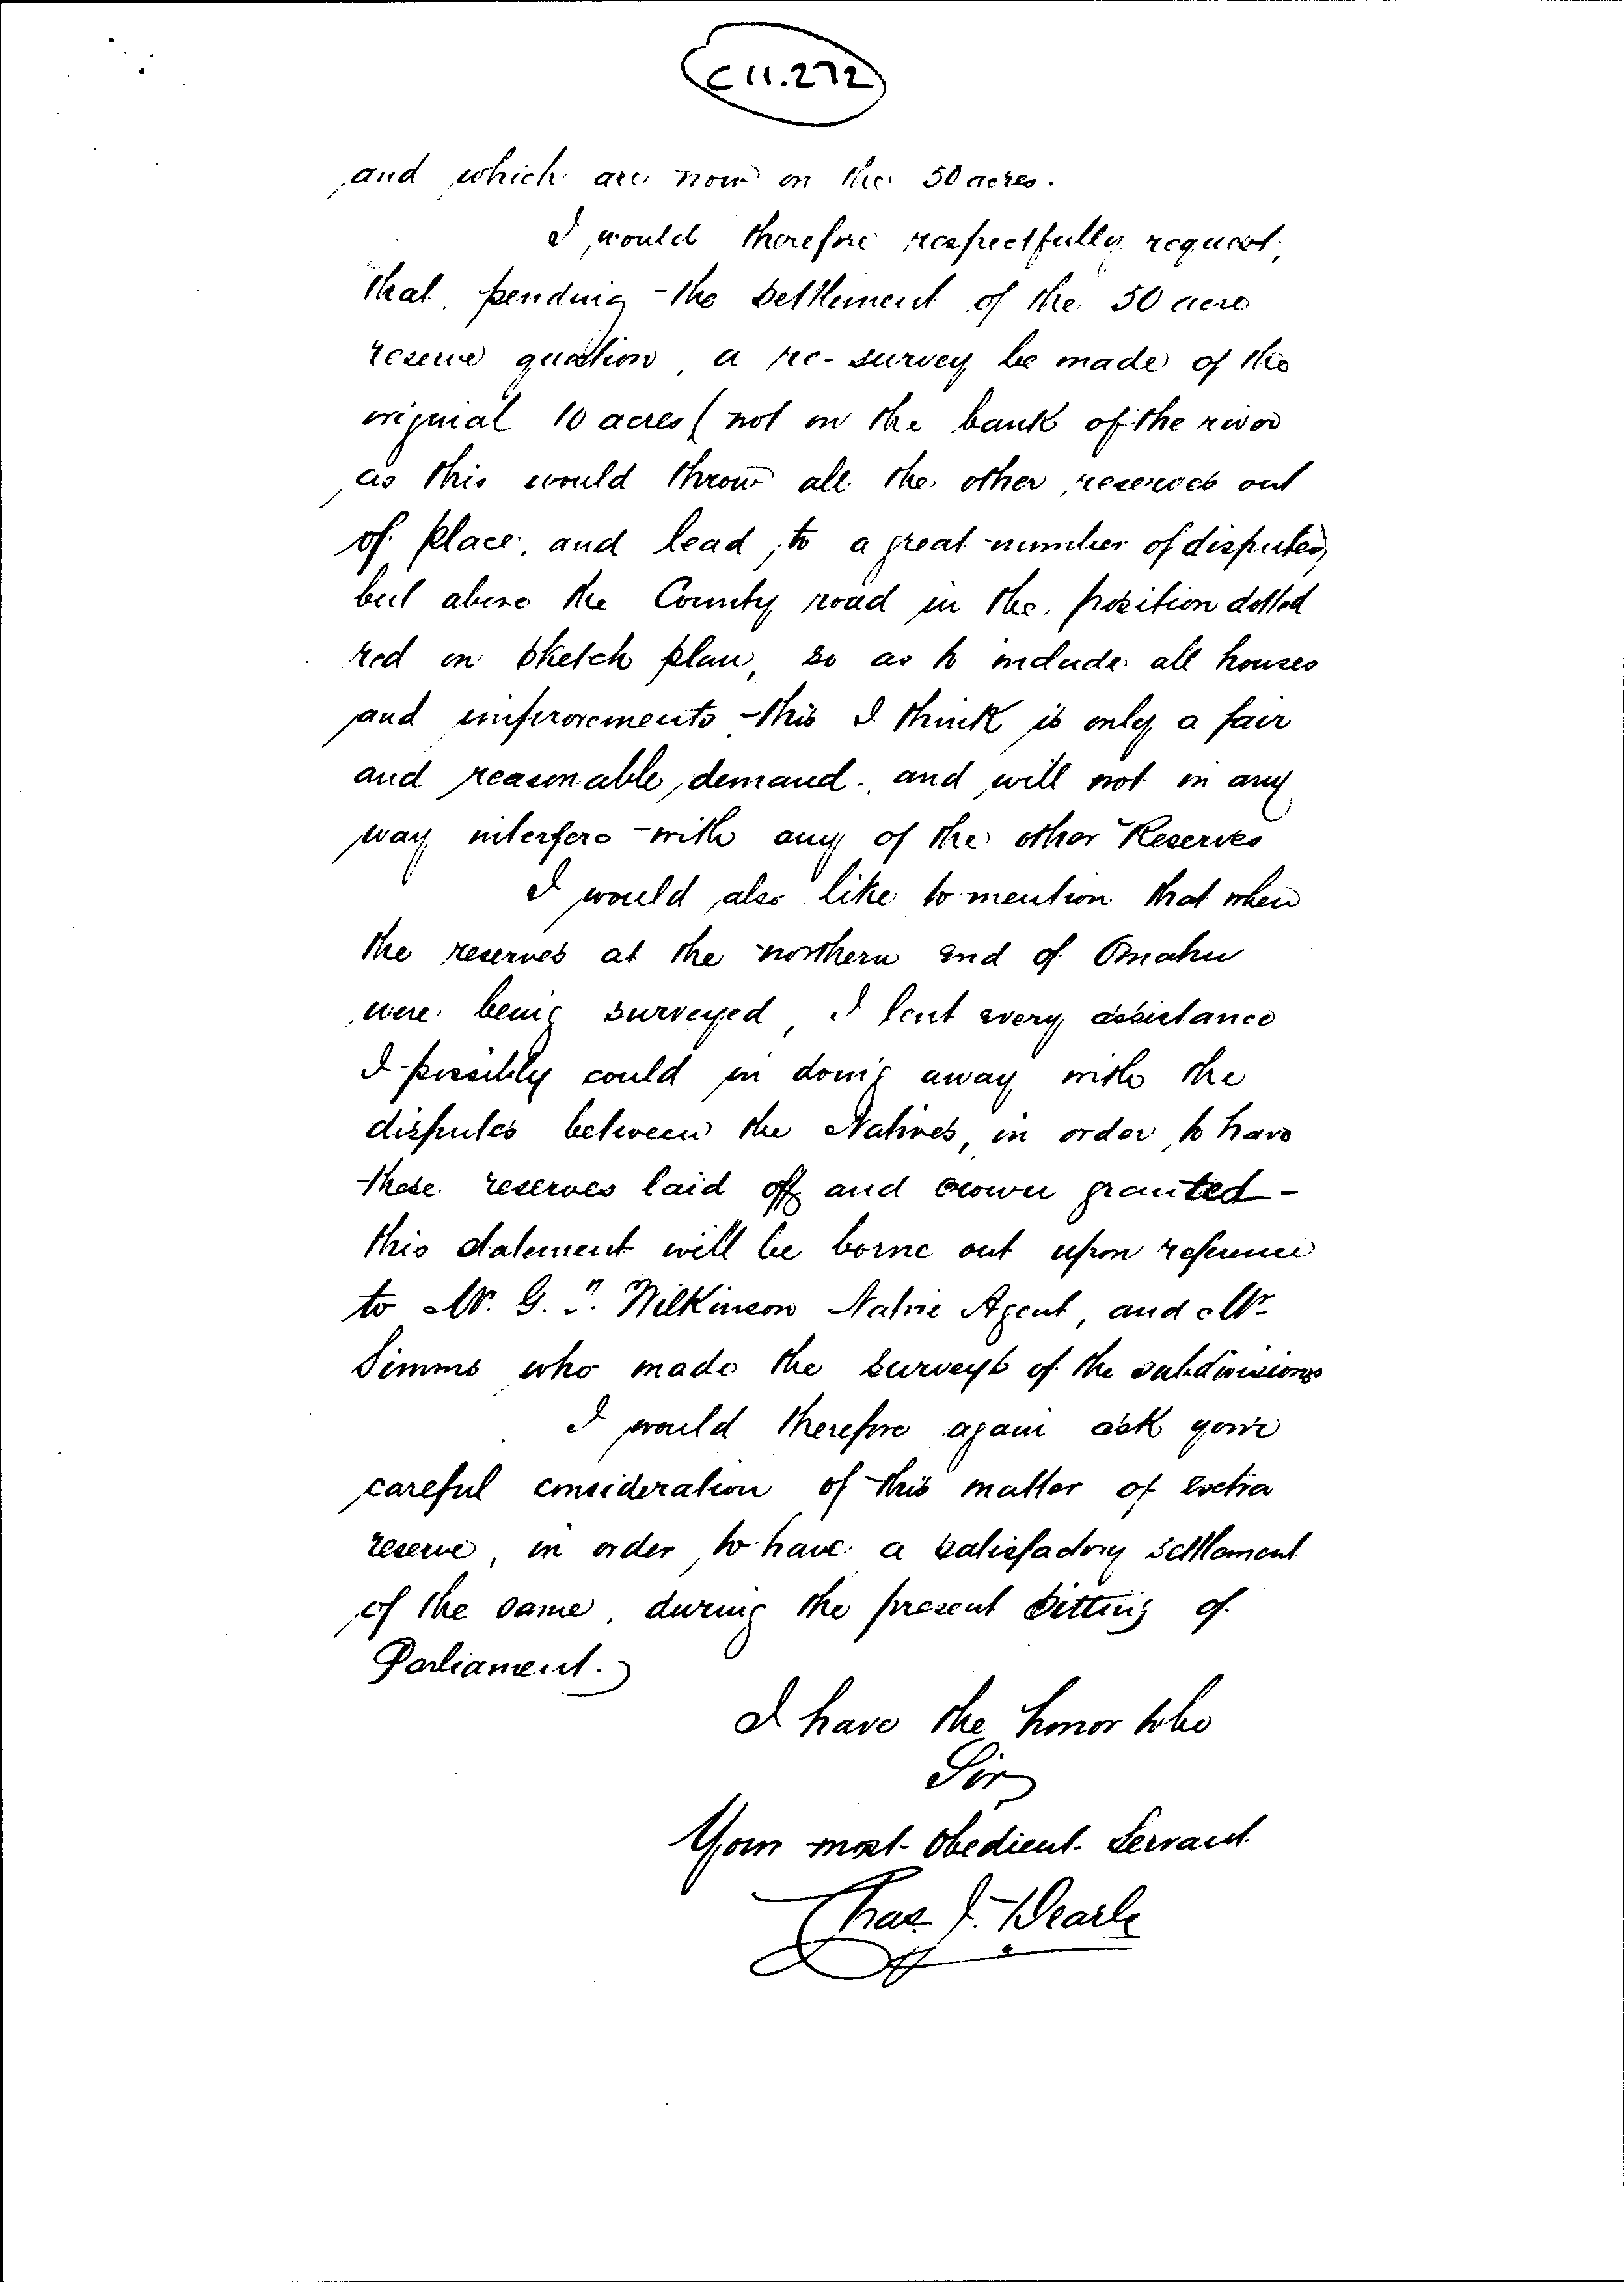 C11.272
and which are now on the 50 acres.
I would therefore respectfully request,
that pending the settlement of the 50 acre
reserve question, a re-survey be made of the
original 10 acres (not on the bank of the river
as this would throw all the other reserves out
of place, and lead to a great number of disputes)
but above the County road in the position dotted
red on sketch plan, so as to include all houses
and improvements - this I think is only a fair
and reasonable demand, and will not in any
way interfere with any of the other Reserves
I would also like to mention that when
the reserves at the northern end of Omahu
were being surveyed, I lent every assistance
I possibly could in doing away with the
disputes between the Natives, in order to have
these reserves laid off and crown granted -
this statement will be borne out upon reference
to Mr. G. Wilkinson Native Agent, and Mr
Simms who made the surveys of the subdivisions
I would therefore again ask your
careful consideration of this matter of extra
reserve, in order to have a satisfactory settlement
of the same, during the present sitting of
Parliament.
I have the honor to be
Sir
Your most Obedient Servant
Chas. J. Dearle